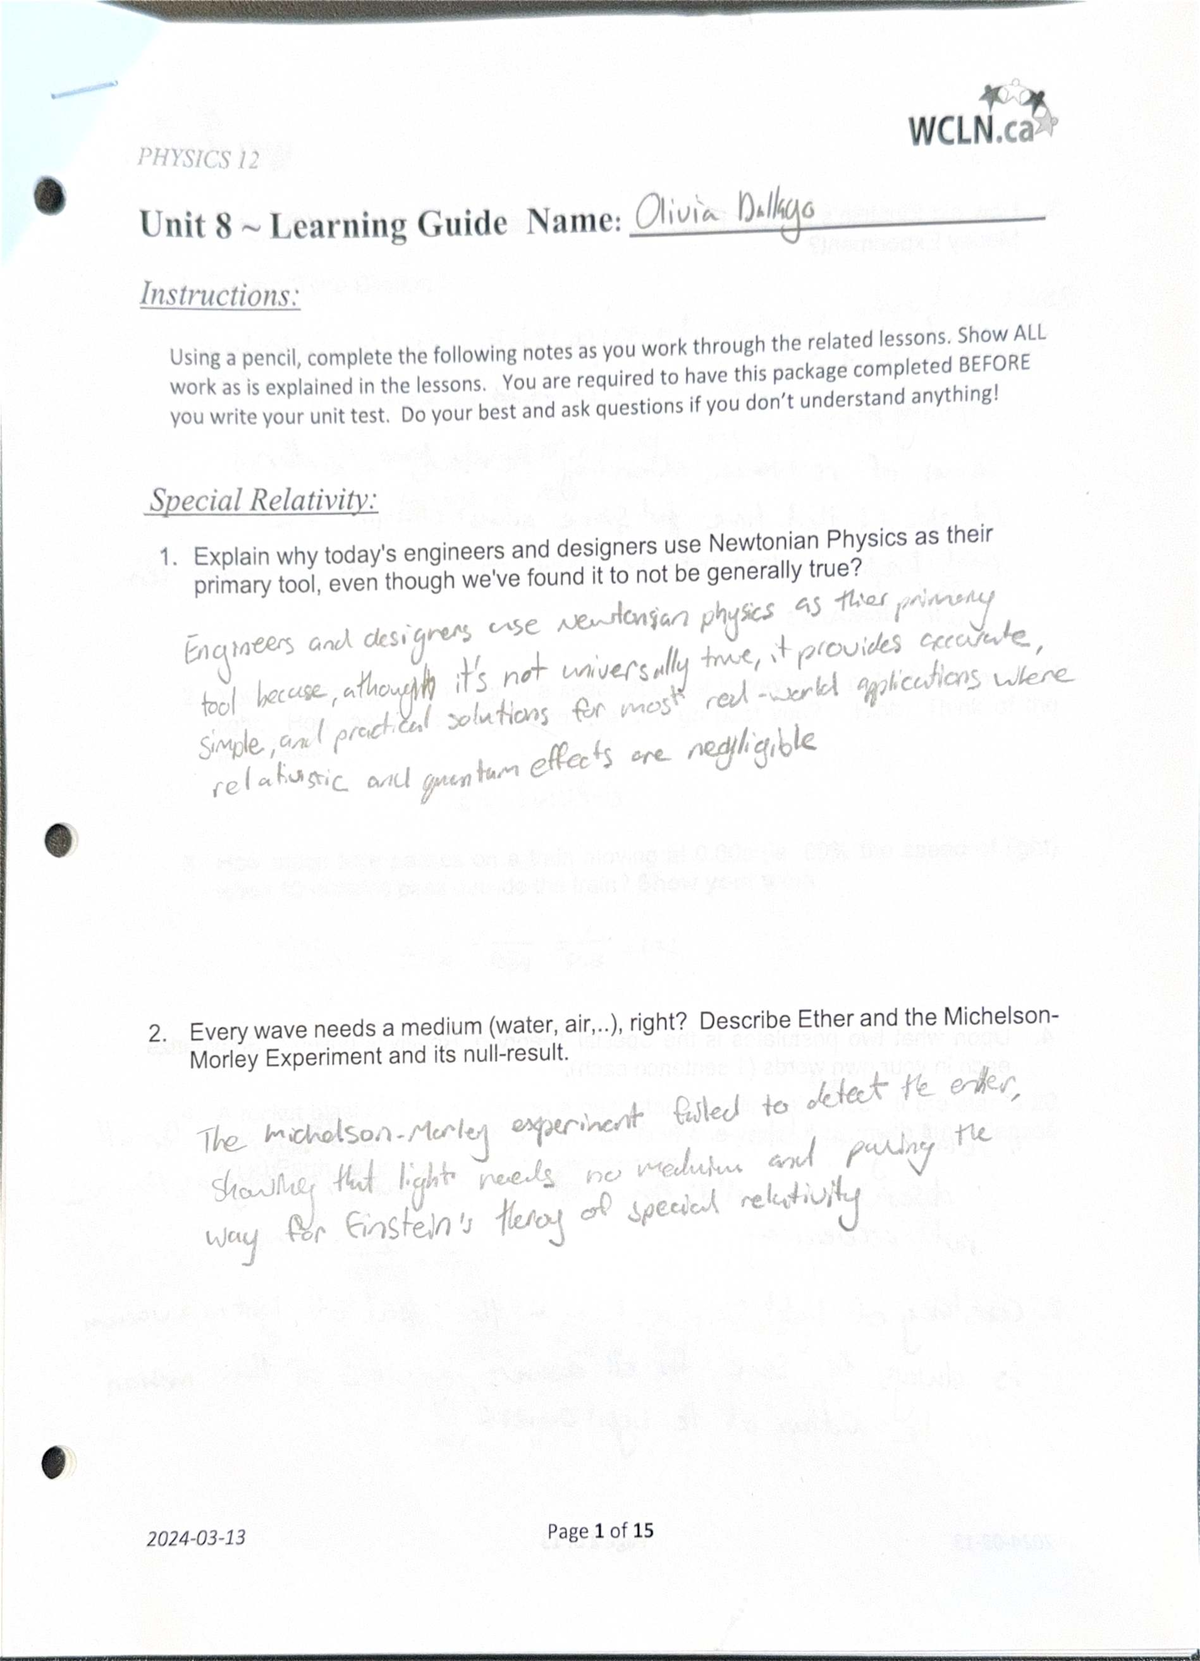 WCLN.ca
PHYSICS 12
Unit 8 ~ Learning Guide Name: Olivia Dallago
Instructions:
Using a pencil, complete the following notes as you work through the related lessons. Show ALL
work as is explained in the lessons. You are required to have this package completed BEFORE
you write your unit test. Do your best and ask questions if you don't understand anything!
Special Relativity:
1. Explain why today's engineers and designers use Newtonian Physics as their
primary tool, even though we've found it to not be generally true?
Engineers and designers use Newtonsian physics as thier primary
tool becuse, athough it's not universally true, it provides accurate,
simple, and practical solutions for most real-world applications where
relativistic and quantum effects are negligible
2. Every wave needs a medium (water, air,..), right? Describe Ether and the Michelson-
Morley Experiment and its null-result.
The Michelson-Morley experiment failed to detect the enter,
Showing that light needs no medium and paving the
way for Einstein's theroy of special relativity
2024-03-13
Page 1 of 15